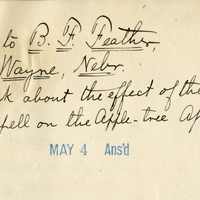 to B. F. Feather,
Wayne, Nebr.
k about the effect of the
fell on the Apple-tree Ap
MAY 4 Ans'd